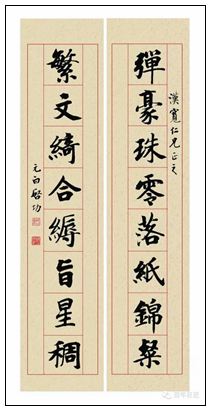 漢寬仁兄正之
彈豪珠零落紙錦粲
繁文綺合縟旨星稠
元白啓功